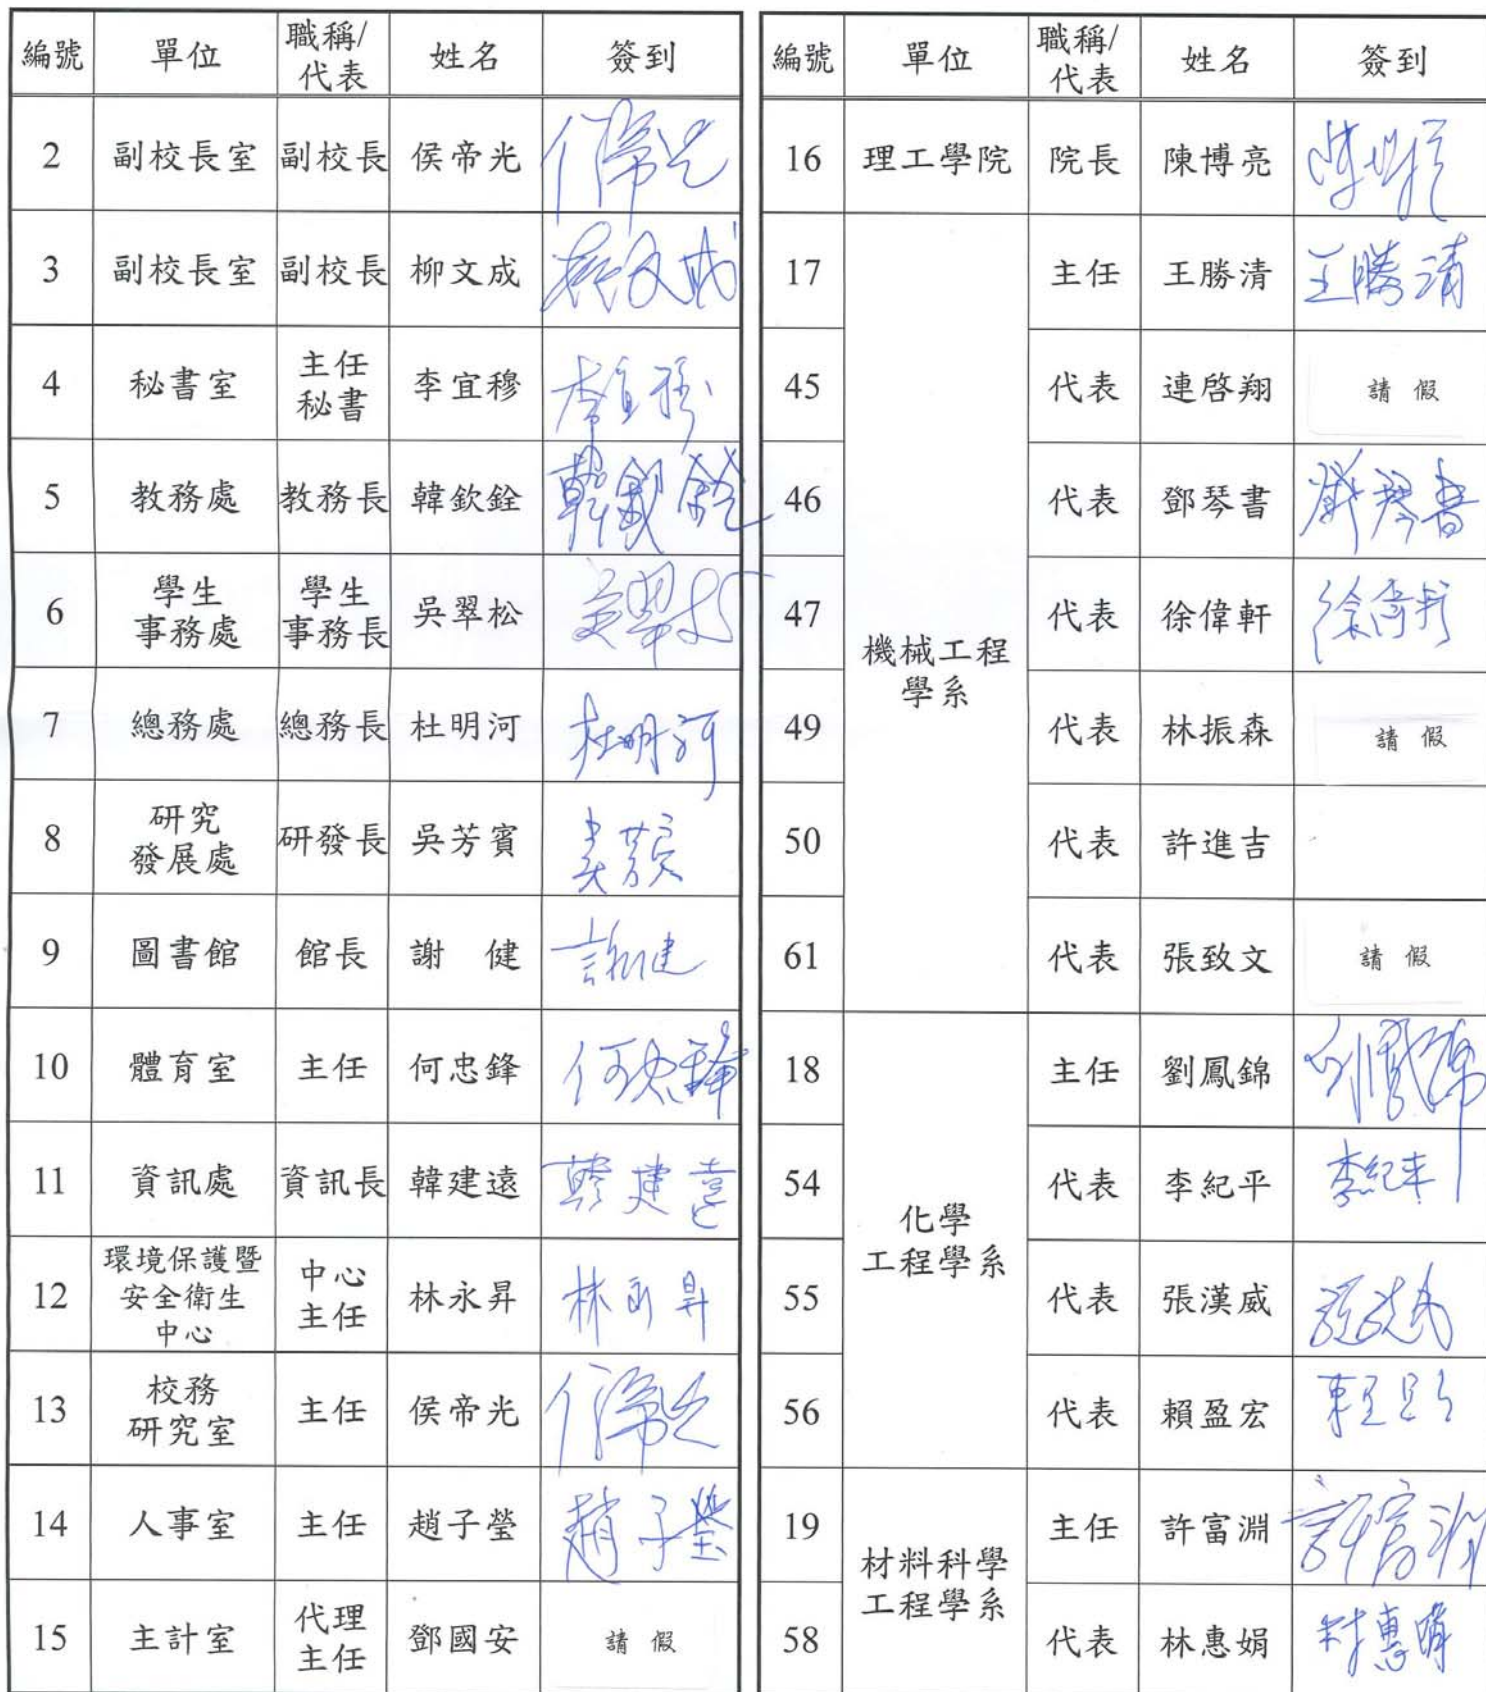 編號 單位 職稱/代表 姓名 簽到
2 副校長室 副校長 侯帝光 侯帝光
3 副校長室 副校長 柳文成 柳文成
4 秘書室 主任秘書 李宜穆 李宜穆
5 教務處 教務長 韓欽銓 韓欽銓
6 學生事務處 學生事務長 吳翠松 吳翠松
7 總務處 總務長 杜明河 杜明河
8 研究發展處 研發長 吳芳賓 吳芳賓
9 圖書館 館長 謝 健 謝健
10 體育室 主任 何忠鋒 何忠鋒
11 資訊處 資訊長 韓建遠 韓建遠
12 環境保護暨安全衛生中心 中心主任 林永昇 林永昇
13 校務研究室 主任 侯帝光 侯帝光
14 人事室 主任 趙子瑩 趙子瑩
15 主計室 代理主任 鄧國安 請假
編號 單位 職稱/代表 姓名 簽到
16 理工學院 院長 陳博亮
17 機械工程學系 主任 王勝清 王勝清
45 代表 連啓翔 請假
46 代表 鄧琴書 鄧琴書
47 代表 徐偉軒 徐偉軒
49 代表 林振森 請假
50 代表 許進吉
61 代表 張致文 請假
18 化學工程學系 主任 劉鳳錦 劉鳳錦
54 代表 李紀平 李紀平
55 代表 張漢威 張漢威
56 代表 賴盈宏
19 材料科學工程學系 主任 許富淵 許富淵
58 代表 林惠娟 林惠娟